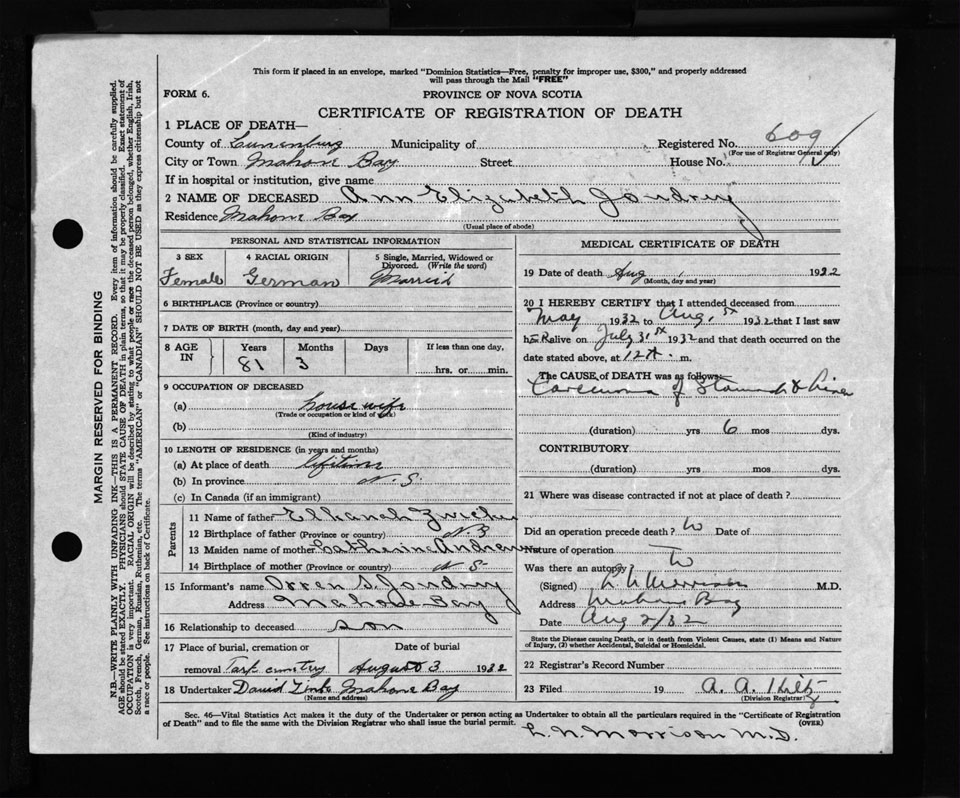 This form if placed in an envelope, marked "Dominion Statistics—Free, penalty for improper use, $300," and properly addressed
will pass through the Mail "FREE"
FORM 6.
PROVINCE OF NOVA SCOTIA
CERTIFICATE OF REGISTRATION OF DEATH
1 PLACE OF DEATH—
County of Lunenburg Municipality of Registered No. 609
(For use of Registrar General only)
City or Town Mahone Bay Street House No.
If in hospital or institution, give name
2 NAME OF DECEASED Ann Elizabeth Joudrey
Residence Mahone Bay
(Usual place of abode)
PERSONAL AND STATISTICAL INFORMATION
3 SEX 4 RACIAL ORIGIN 5 Single, Married, Widowed or
Divorced. (Write the word)
Female German Married
6 BIRTHPLACE (Province or country)
7 DATE OF BIRTH (month, day and year)
8 AGE IN Years Months Days If less than one day,
81 3 hrs. or min.
9 OCCUPATION OF DECEASED
(a) house wife
(Trade or occupation or kind of work)
(b)
(Kind of industry)
10 LENGTH OF RESIDENCE (in years and months)
(a) At place of death lifetime
(b) In province N.S.
(c) In Canada (if an immigrant)
Parents
11 Name of father Elkanah
12 Birthplace of father (Province or country) N.S
13 Maiden name of mother Catherine Andrews
14 Birthplace of mother (Province or country) N-S-
15 Informant's name Orren S. Joudrey
Address Mahone Bay
16 Relationship to deceased son
17 Place of burial, cremation or Date of burial
removal Park cemetry August 3 1932
18 Undertaker David Zink Mahone Bay
(Name and address)
MEDICAL CERTIFICATE OF DEATH
19 Date of death Aug 1932
(Month, day and year)
20 I HEREBY CERTIFY that I attended deceased from
May 1932 to Aug. 1st 1932 that I last saw
h ER alive on July 31st 1932 and that death occurred on the
date stated above, at 12 m.
The CAUSE OF DEATH was as follows:
Carcinoma of Stomach & Liver
(duration) yrs 6 mos dys.
CONTRIBUTORY
(duration) yrs mos dys.
21 Where was disease contracted if not at place of death?
Did an operation precede death? Date of
Nature of operation
Was there an autopsy?
(Signed) L. N. Morrison M.D.
Address Mahone Bay
Date Aug 2/32
State the Disease causing Death, or in death from Violent Causes, state (1) Means and Nature
of Injury, (2) whether Accidental, Suicidal or Homicidal.
22 Registrar's Record Number
23 Filed 19 A. A.
(Division Registrar)
Sec. 46—Vital Statistics Act makes it the duty of the Undertaker or person acting as Undertaker to obtain all the particulars required in the "Certificate of Registration
of Death" and to file the same with the Division Registrar who shall issue the burial permit. (OVER)
L. N. Morrison M.D.
MARGIN RESERVED FOR BINDING
N.B.—WRITE PLAINLY WITH UNFADING INK—THIS IS A PERMANENT RECORD. Every item of information should be carefully supplied.
AGE should be stated EXACTLY. PHYSICIANS should STATE CAUSE OF DEATH in plain terms, so that it may be properly classified. Exact statement of
OCCUPATION is very important. RACIAL ORIGIN will be described by stating to what people or race the deceased person belonged, whether English, Irish,
Scotch, French, German, Russian, Ruthenian, etc. The terms "AMERICAN" or "CANADIAN" SHOULD NOT BE USED as they express citizenship but not
a race or people. See instructions on back of Certificate.